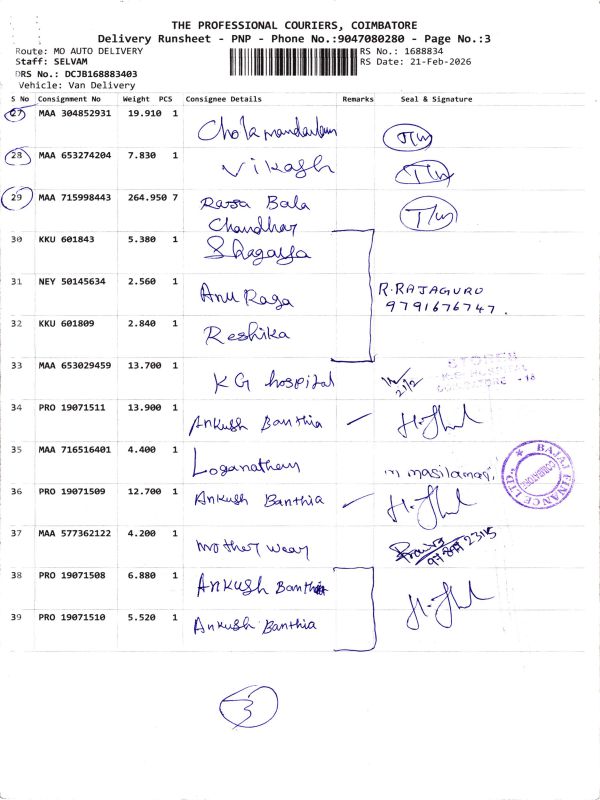 THE PROFESSIONAL COURIERS, COIMBATORE
Delivery Runsheet - PNP - Phone No.:9047080280 - Page No.:3
Route: MO AUTO DELIVERY
RS No.: 1688834
Staff: SELVAM
RS Date: 21-Feb-2026
DRS No.: DCJB168883403
Vehicle: Van Delivery
S No Consignment No Weight PCS Consignee Details Remarks Seal & Signature
27 MAA 304852931 19.910 1 Cholamandalam T/W
28 MAA 653274204 7.830 1 Vikash T/W
29 MAA 715998443 264.950 7 Rasa Bala Chandhar T/W
30 KKU 601843 5.380 1
31 NEY 50145634 2.560 1 Anu Raga R. RAJAGURU
9791676747.
32 KKU 601809 2.840 1 Reshika
33 MAA 653029459 13.700 1 KG hospital 21/2
STORES
34 PRO 19071511 13.900 1 Ankush Banthia
35 MAA 716516401 4.400 1 Loganathan m masilamani
BAJAJ FINANCE LTD.,
COIMBATORE
36 PRO 19071509 12.700 1 Ankush Banthia
37 MAA 577362122 4.200 1 mother wear
38 PRO 19071508 6.880 1 Ankush Banthia
39 PRO 19071510 5.520 1 Ankush Banthia
3